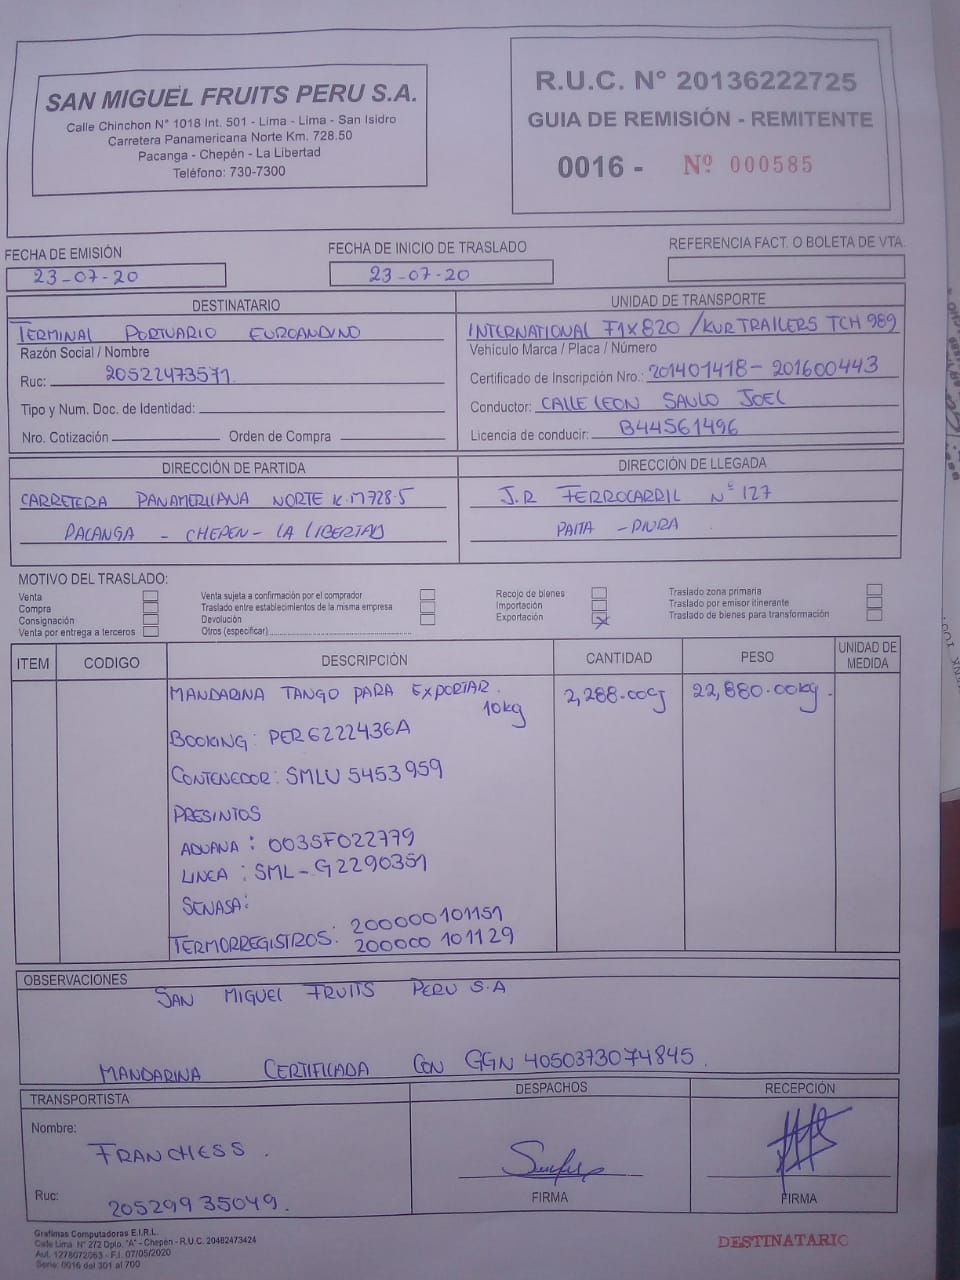 SAN MIGUEL FRUITS PERU S.A.
Calle Chinchon N° 1018 Int. 501 - Lima - Lima - San Isidro
Carretera Panamericana Norte Km. 728.50
Pacanga - Chepén - La Libertad
Teléfono: 730-7300
R.U.C. N° 20136222725
GUIA DE REMISIÓN - REMITENTE
0016 - Nº 000585
FECHA DE EMISIÓN
23-07-20
FECHA DE INICIO DE TRASLADO
23-07-20
REFERENCIA FACT. O BOLETA DE VTA.
DESTINATARIO
TERMINAL PORTUARIO EUROANDINO
Razón Social / Nombre
Ruc: 20522473571
Tipo y Num. Doc. de Identidad:
Nro. Cotización Orden de Compra
UNIDAD DE TRANSPORTE
INTERNATIONAL F1X820 / KUR TRAILERS TCH 989
Vehículo Marca / Placa / Número
Certificado de Inscripción Nro.: 201401418 - 201600443
Conductor: CALLE LEON SAULO JOEL
Licencia de conducir: B44561496
DIRECCIÓN DE PARTIDA
CARRETERA PANAMERICANA NORTE K.M 728.5
PACANGA - CHEPEN - LA LIBERTAD
DIRECCIÓN DE LLEGADA
J.R FERROCARRIL Nº 127
PAITA - PIURA
MOTIVO DEL TRASLADO:
Venta
Compra
Consignación
Venta por entrega a terceros
Venta sujeta a confirmación por el comprador
Traslado entre establecimientos de la misma empresa
Devolución
Otros (especificar)
Recojo de bienes
Importación
Exportación X
Traslado zona primaria
Traslado por emisor itinerante
Traslado de bienes para transformación
ITEM CODIGO DESCRIPCIÓN CANTIDAD PESO UNIDAD DE MEDIDA
MANDARINA TANGO PARA EXPORTAR. 2,288.00CJ 22,880.00kg.
10kg
BOOKING: PER6222436A
CONTENEDOR: SMLU 5453959
PRESINTOS
ADUANA: 003SF022779
LINEA: SML-G2290351
SENASA:
TERMORREGISTROS: 200000101151
200000 101129
OBSERVACIONES
SAN MIGUEL FRUITS PERU S.A
MANDARINA CERTIFICADA CON GGN 4050373074845.
TRANSPORTISTA
Nombre:
FRANCHESS.
Ruc: 20529935049.
DESPACHOS
FIRMA
RECEPCIÓN
FIRMA
Grafimas Computadoras E.I.R.L.
Calle Lima N° 272 Dpto. "A" - Chepén - R.U.C. 20482473424
Aut. 1278072063 - F.I. 07/05/2020
Serie: 0016 del 301 al 700
DESTINATARIO